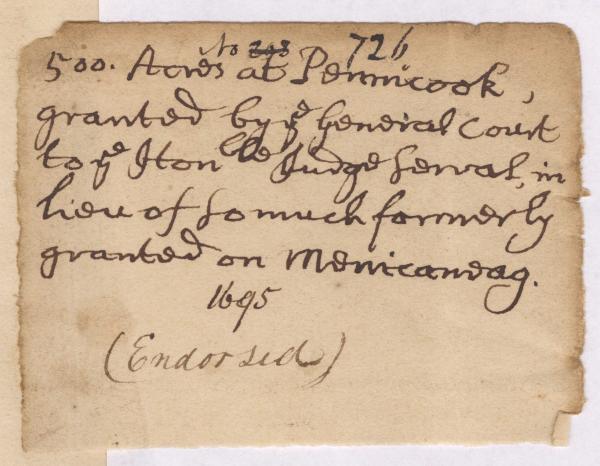 No 298 726
500. Acres at Pennicook,
granted by yᵉ General Court
to yᵉ Honble Judge Sewal, in
lieu of so much formerly
granted on Menicandag.
1695
(Endorsed)